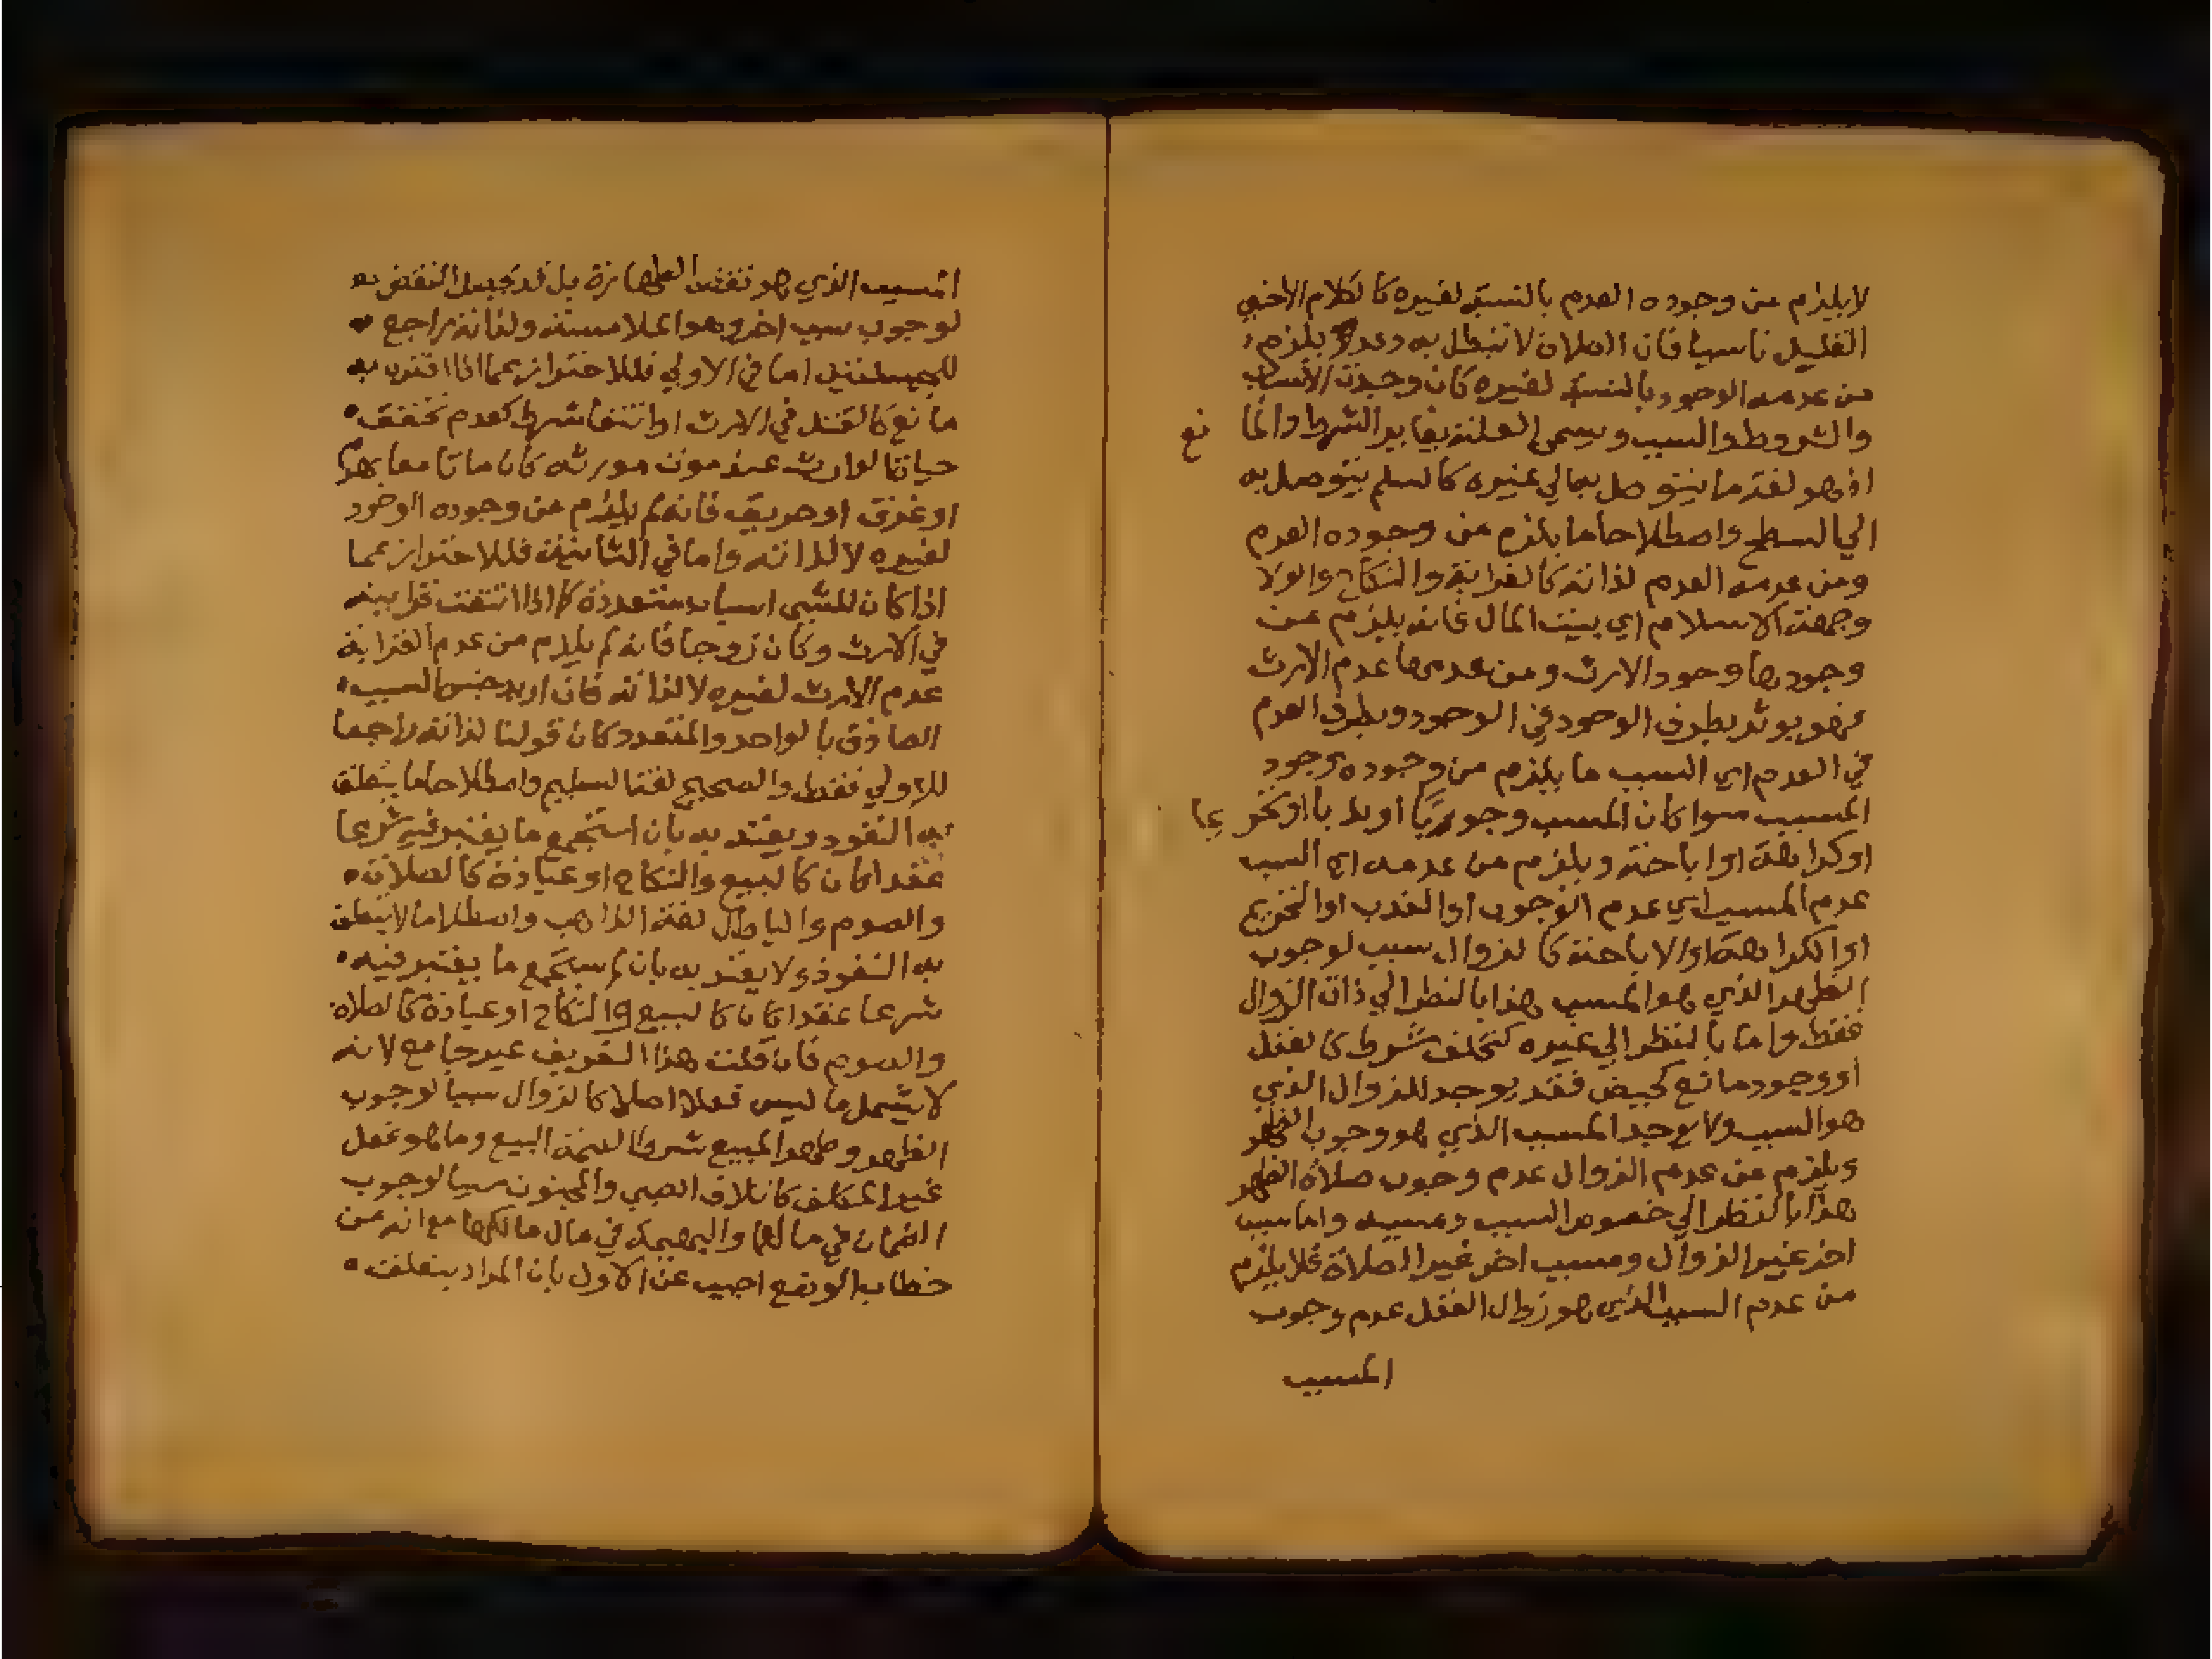 لا يلزم من وجوده العدم بالنسبة لغيره كالكلام الأجنبي
القليل ناسيا فان الصلاة لا تبطل به وعدم يلزم
من عدمه الوجود بالنسبة لغيره كان وجدت الأسباب
والشروط والسبب ويسمى العلة يغاير الشرط والما نع
اذ هو لغة ما يتوصل به الي غيره كالسلم يتوصل به
الي السطح واصطلاحا ما يلزم من وجوده العدم
ومن عدمه العدم لذاته كالقرابة والنكاح والولا
وجهة الاسلام اي بيت المال فانه يلزم من
وجودها وجود الارث ومن عدمها عدم الارث
فهو يوثر بطرف الوجود في الوجود وبطرف العدم
في العدم اي السبب ما يلزم من وجوده وجود
المسبب سوا كان المسبب وجوبا او ندبا او تحر يما
او كراهة او اباحة ويلزم من عدمه اي السبب
عدم المسبب اي عدم الوجوب او الندب او التحريم
او الكراهة او الاباحة كالزوال سبب لوجوب
الظهر الذي هو المسبب هذا بالنظر الي ذات الزوال
فقط واما بالنظر الي غيره كتخلف شرط كالعقل
او وجود مانع كحيض فقد يوجد الزوال الذي
هو السبب ولا يوجد المسبب الذي هو وجوب الظهر
ويلزم من عدم الزوال عدم وجوب صلاة الظهر
هذا بالنظر الي خصوص السبب ومسببه واما سبب
اخر غير الزوال ومسبب اخر غير الصلاة فلا يلزم
من عدم السبب الذي هو زوال العقل عدم وجوب
المسبب
المسبب الذي هو نقض الطهارة بل قد يحصل النقض به
لوجوب سبب اخر وهو الملامسة ولذاته راجع
للجملتين اما في الاولي فللاحتراز عما اذا اقترن به
مانع كالقتل في الارث او انتفا شرط كعدم تحقق
حياة الوارث عند موت مورثه كان ماتا معا بهدم
او غرق او حريق فانه لم يلزم من وجوده الوجود
لغيره لا لذاته واما في الثانية فللاحتراز عما
اذا كان للشي اسباب متعددة كما اذا انتفت قرابته
في الارث وكان زوجا فانه لم يلزم من عدم القرابة
عدم الارث لغيره لا لذاته فان اريد جنس السبب
الصادق بالواحد والمتعدد كان قولنا لذاته راجعا
للاولي فقط والصحيح لغة السليم واصطلاحا ما يتعلق
به النفوذ ويعتد به بان استجمع ما يعتبر فيه شرعا
عقدا كان كالبيع والنكاح او عبادة كالصلاة
والصوم والباطل لغة الذاهب واصطلاما لا يتعلق
به النفوذ ولا يعتد به بان لم يستجمع ما يعتبر فيه
شرعا عقدا كان كالبيع والنكاح او عبادة كالصلاة
والصوم فان قلت هذا التعريف غير جامع لانه
لا يشمل ما ليس فعلا اصلا كالزوال سببا لوجوب
الظهر وطهر المبيع شرطا لصحة البيع وما هو فعل
غير المكلف كاتلاف الصبي والمجنون سببا لوجوب
الضمان في مالهما والبهيمة في مال مالكها مع انه من
خطاب الوضع اجيب عن الاول بان المراد بتعلقه